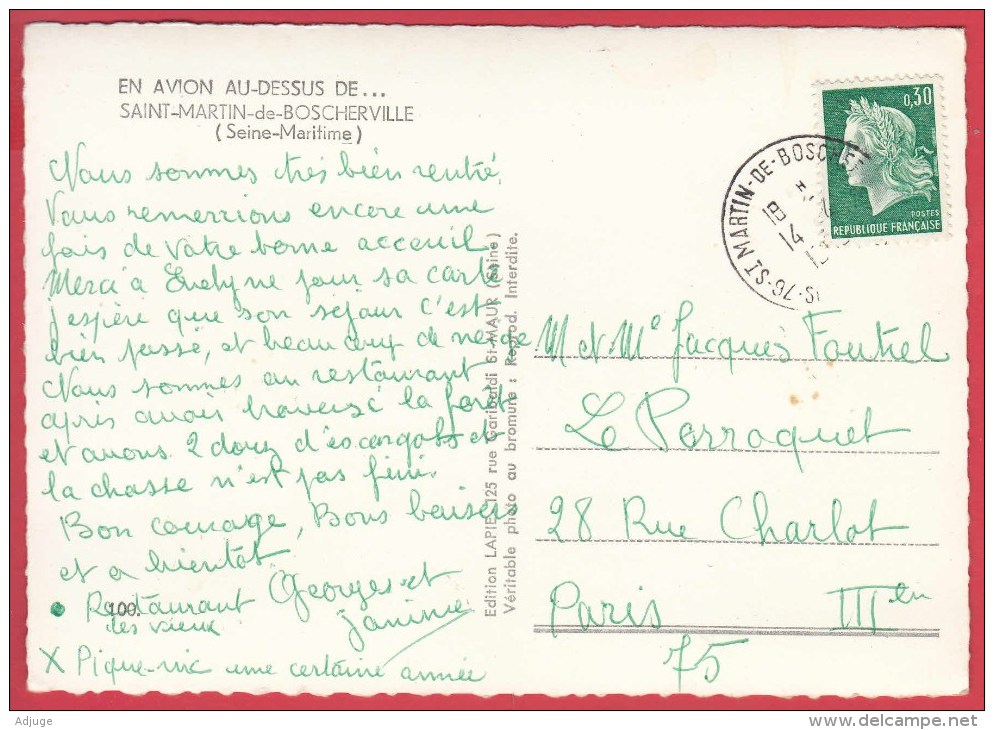 EN AVION AU-DESSUS DE...
SAINT-MARTIN-de-BOSCHERVILLE
(Seine-Maritime)
Nous sommes très bien rentré,
Vous remercions encore une
fois de votre bonne acceuil
Merci à Evelyne pour sa carte
j'espère que son séjour c'est
bien passé, et beaucoup de neige
Nous sommes au restaurant
après avoir traversé la forêt
et avons 2 douz d'escargots et
la chasse n'est pas fini.
Bon courage, Bons baisers
et a bientôt
Georges et
Janine
Restaurant
100.
des vieux
X Pique-nic une certaine année
Edition LAPIE, 125 rue Garibaldi St-MAUR (Seine)
Véritable photo au bromure : Reprod. Interdite.
0,30
POSTES
REPUBLIQUE FRANÇAISE
76-ST MARTIN-DE-BOSCHE
18
14
M et Me Jacques Foutrel
Le Perroquet
28 Rue Charlot
Paris IIIen
75
Adjuge
delcampe.net